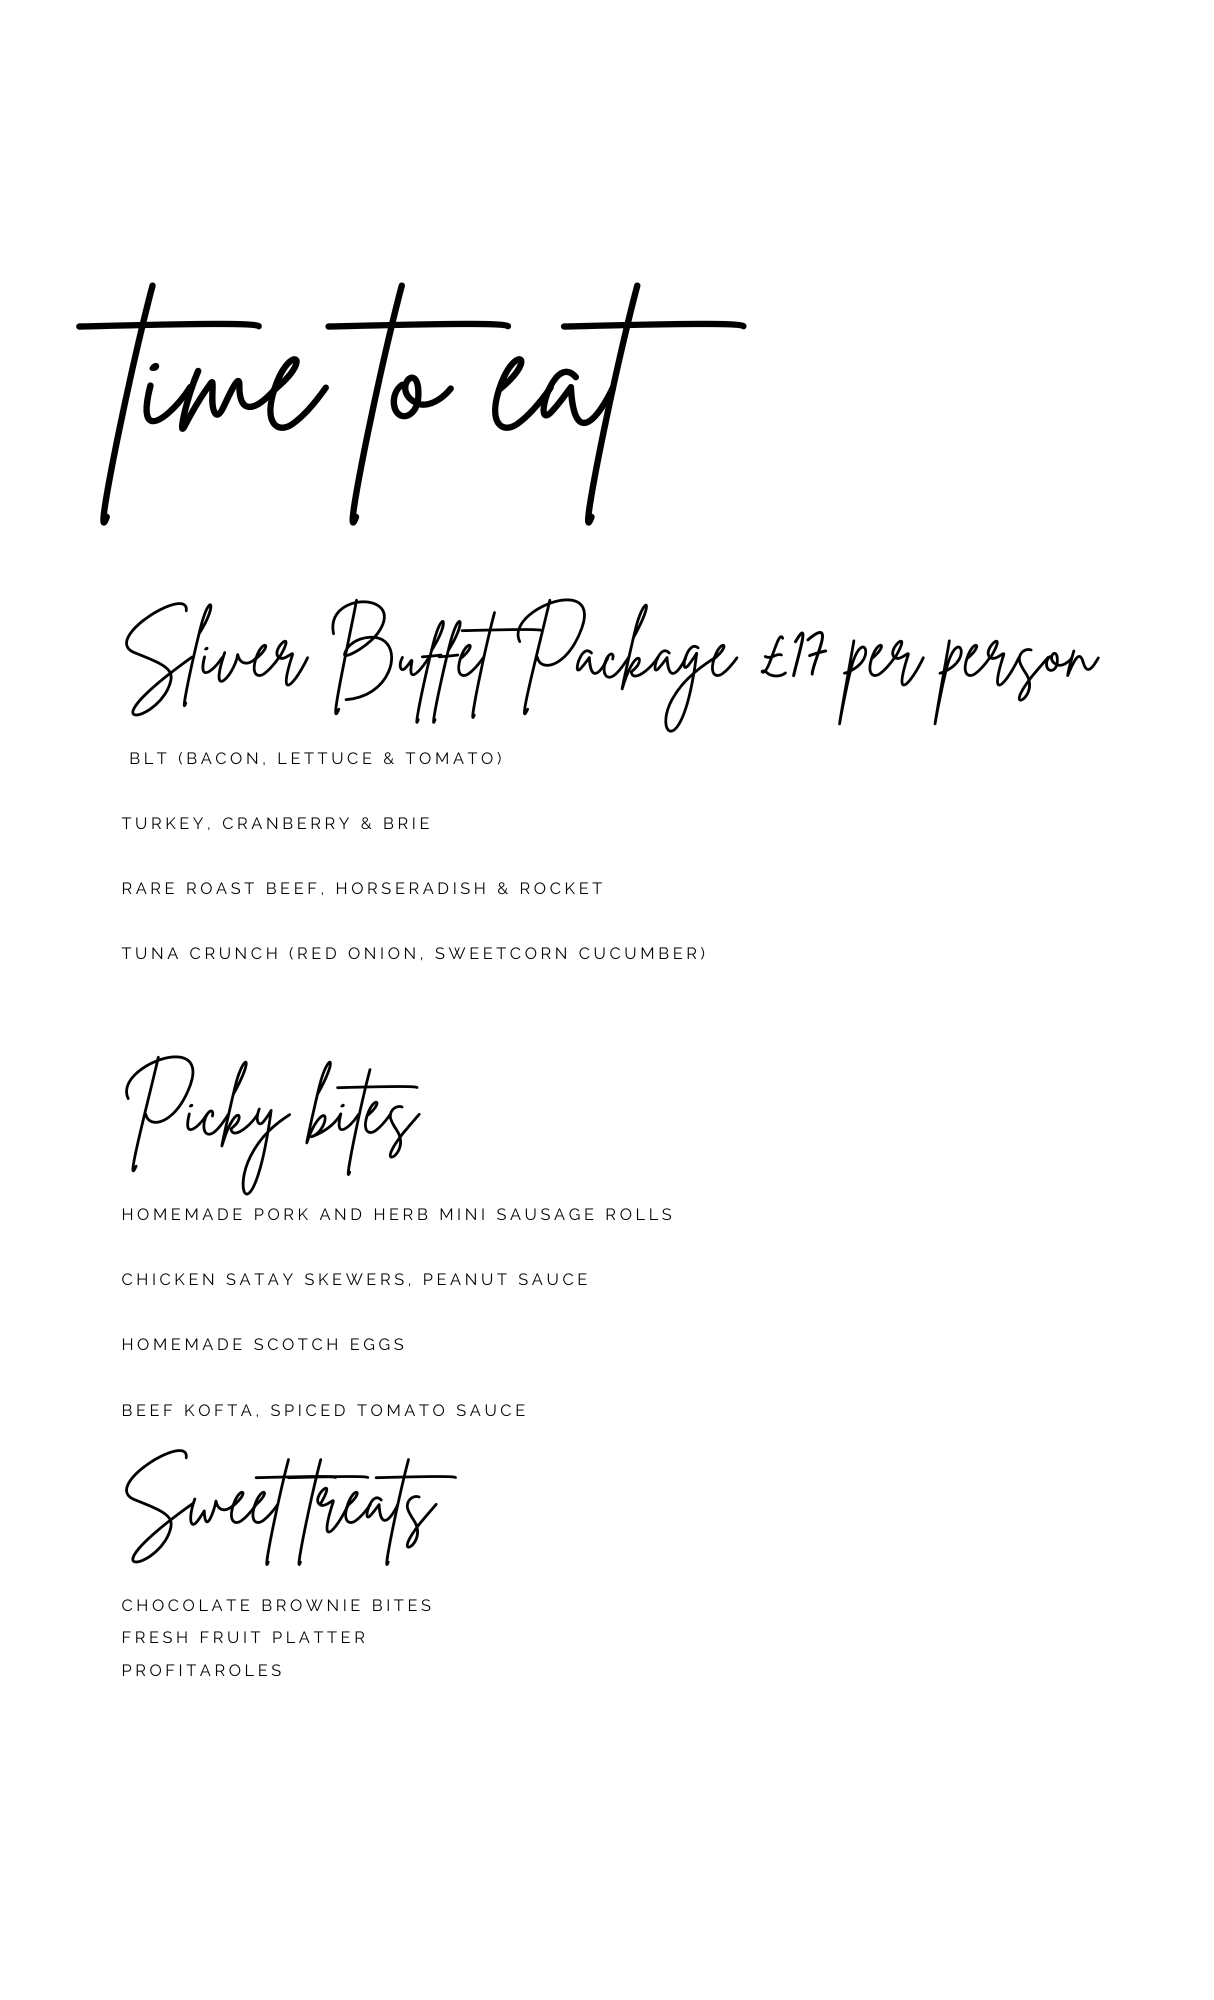 time to eat
Sliver Buffet Package £17 per person
BLT (BACON, LETTUCE & TOMATO)
TURKEY, CRANBERRY & BRIE
RARE ROAST BEEF, HORSERADISH & ROCKET
TUNA CRUNCH (RED ONION, SWEETCORN CUCUMBER)
Picky bites
HOMEMADE PORK AND HERB MINI SAUSAGE ROLLS
CHICKEN SATAY SKEWERS, PEANUT SAUCE
HOMEMADE SCOTCH EGGS
BEEF KOFTA, SPICED TOMATO SAUCE
Sweet treats
CHOCOLATE BROWNIE BITES
FRESH FRUIT PLATTER
PROFITAROLES